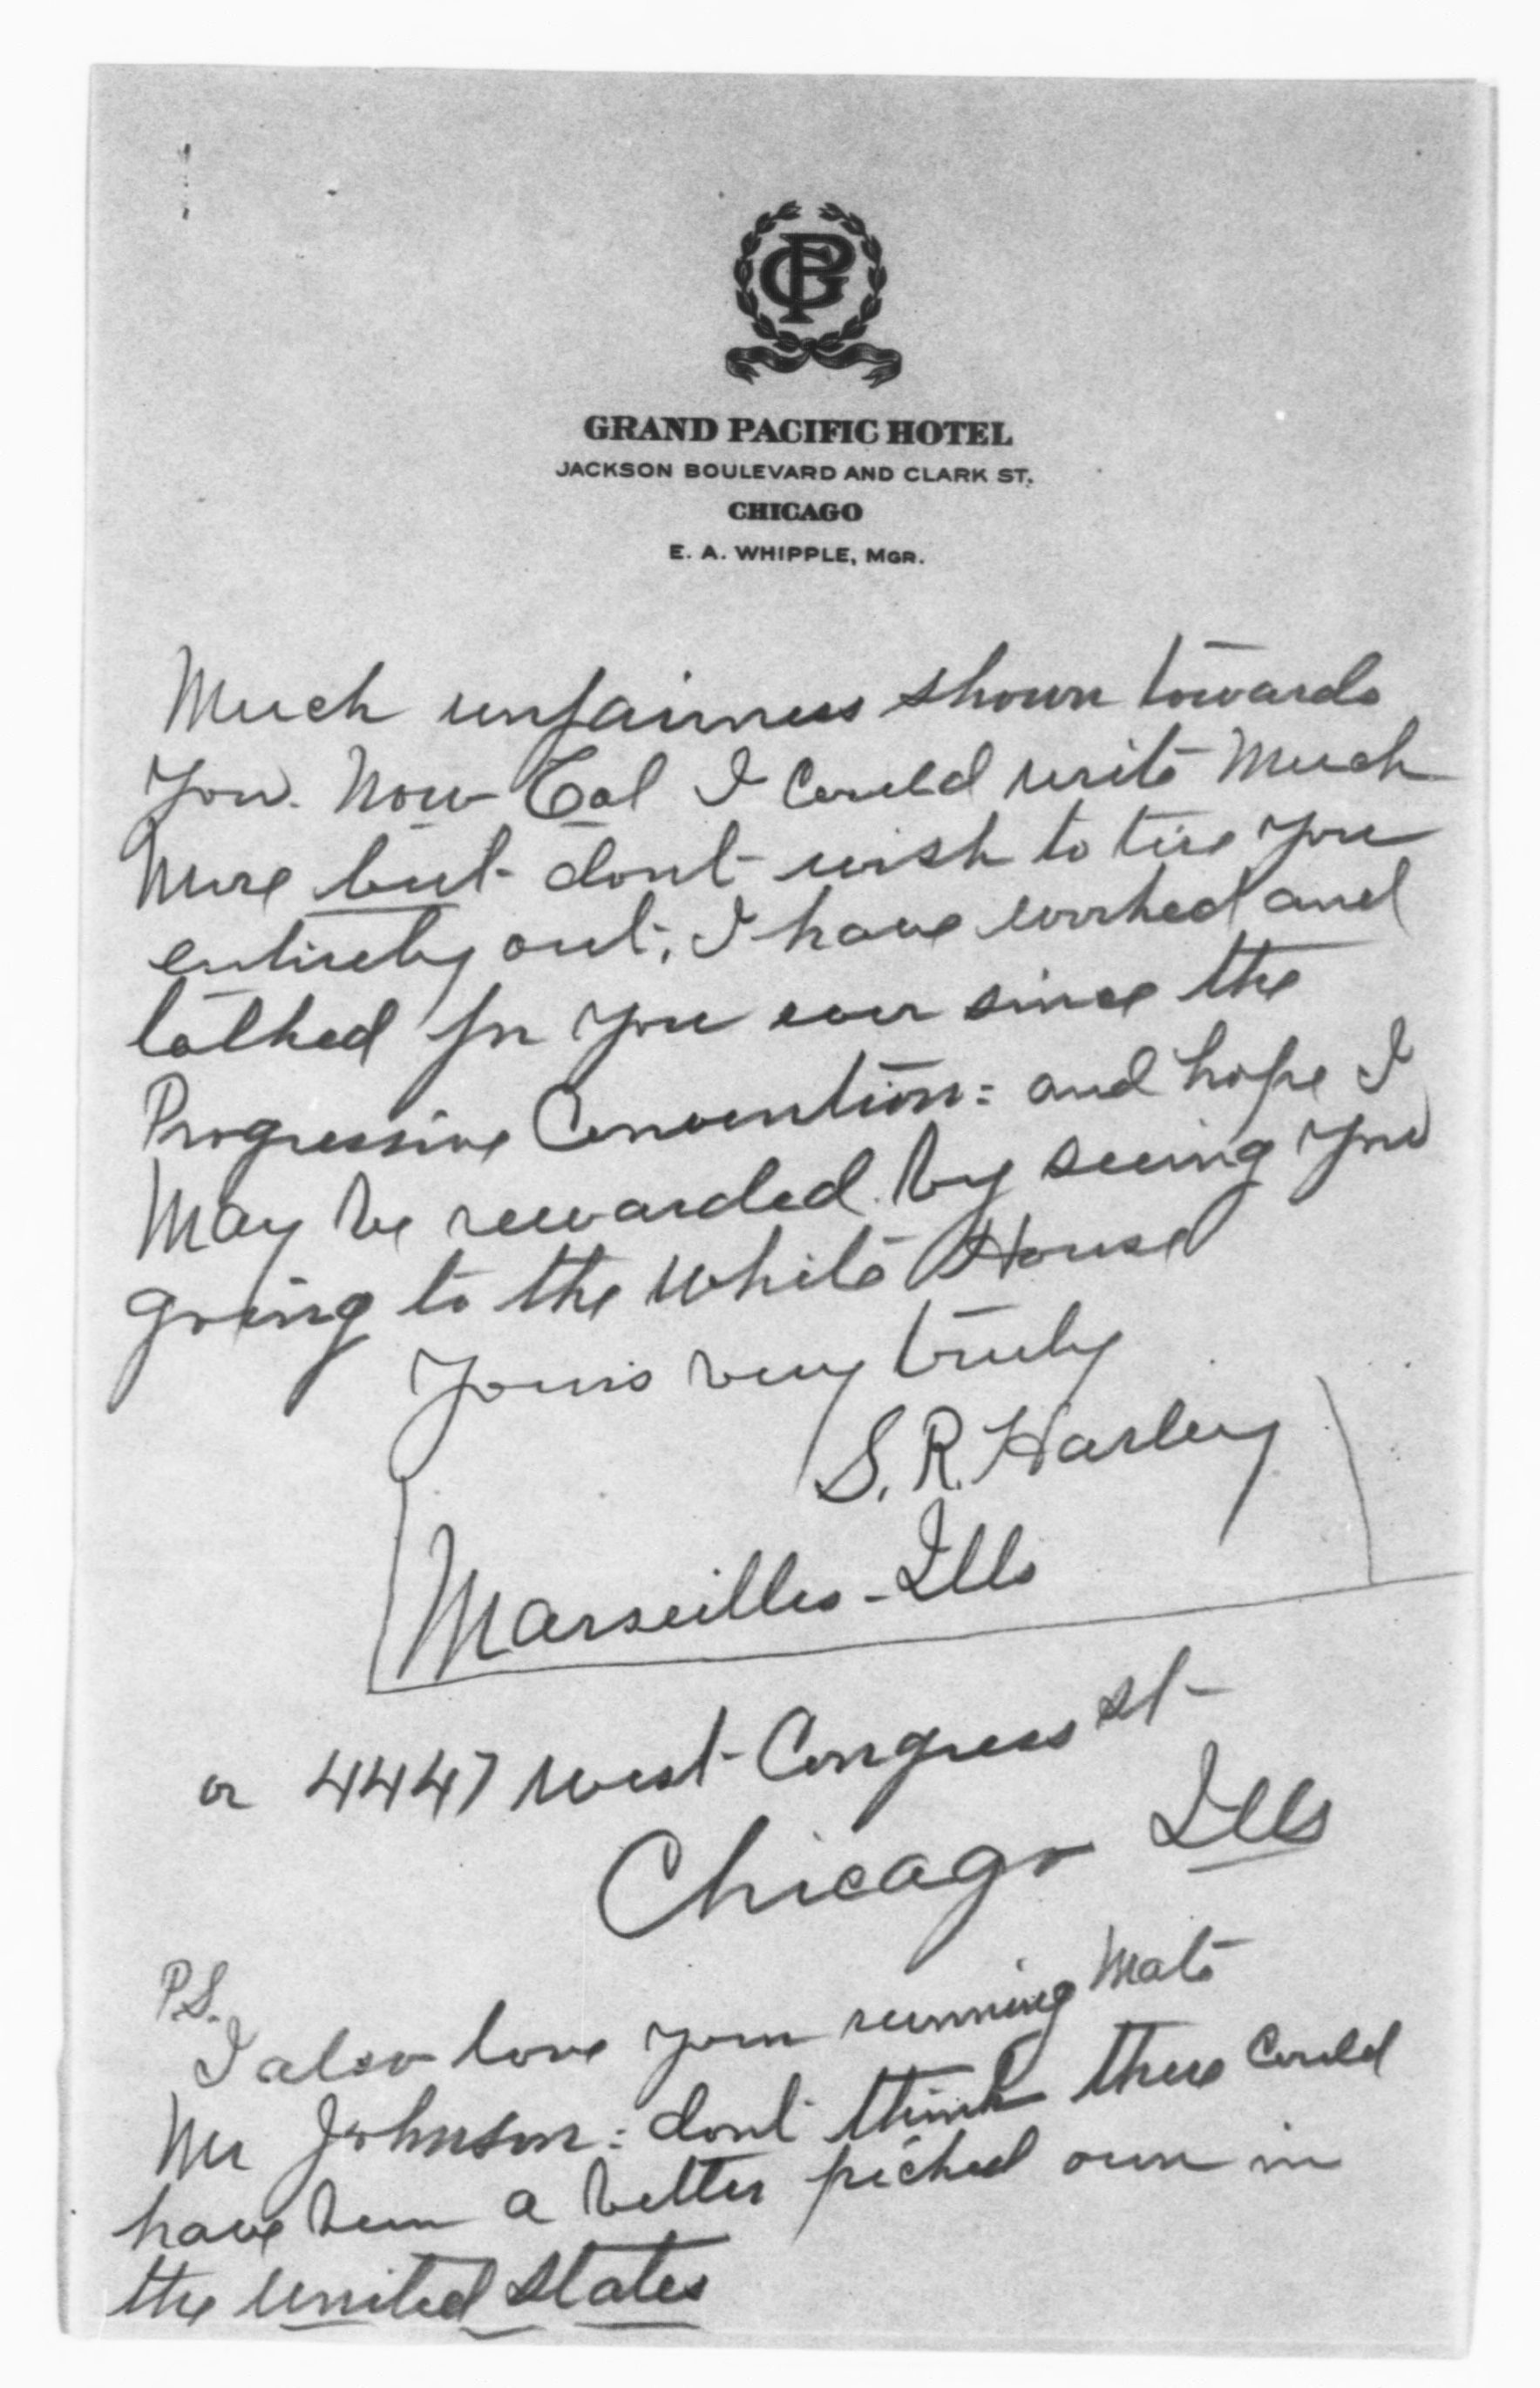 GP
GRAND PACIFIC HOTEL
JACKSON BOULEVARD AND CLARK ST.
CHICAGO
E. A. WHIPPLE, MGR.
Much unfairness shown towards
you. Now Col I could write Much
More but dont wish to tire you
entirely out; I have worked and
talked for you ever since the
Progressive Convention: and hope I
May be rewarded by seeing you
going to the White House
Yours very truly
S. R. Harley
Marseilles - Ills
or 4447 West Congress st
Chicago Ills
P.S.
I also love your running Mate
Mr Johnson: dont think there Could
have been a better picked one in
the United States